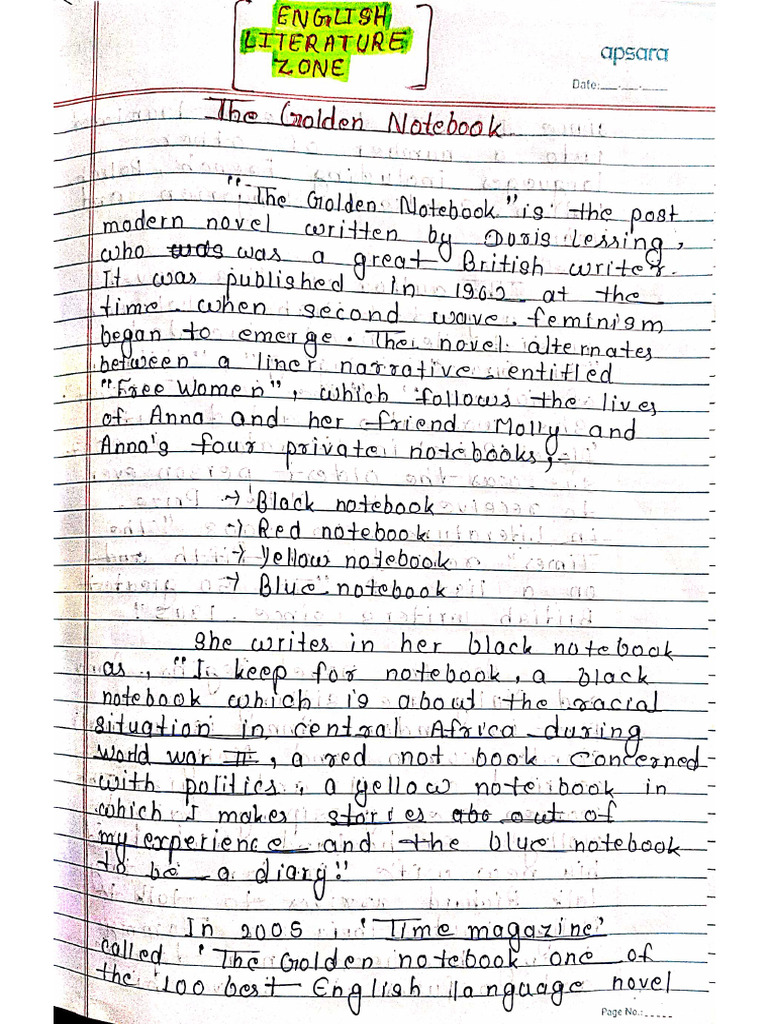 ENGLISH
LITERATURE
ZONE
apsara
Date:__.__.____
The Golden Notebook
"The Golden Notebook" is the post
modern novel written by Doris Lessing,
who was was a great British writer.
It was published in 1962 at the
time when second wave feminism
began to emerge. The novel alternates
between a liner narrative entitled
"Free Women", which follows the lives
of Anna and her friend Molly and
Anna's four private notebooks;-
→ Black notebook
→ Red notebook
→ Yellow notebook
→ Blue notebook
She writes in her black notebook
as, "I keep for notebook, a black
notebook which is about the racial
situation in central Africa during
world war II, a red not book concerned
with politics, a yellow note book in
which I makes stories abo out of
my experience and the blue notebook
to be a diary."
In 2005, 'Time magazine'
called 'The Golden notebook one of
the 100 best English language novel
Page No.: